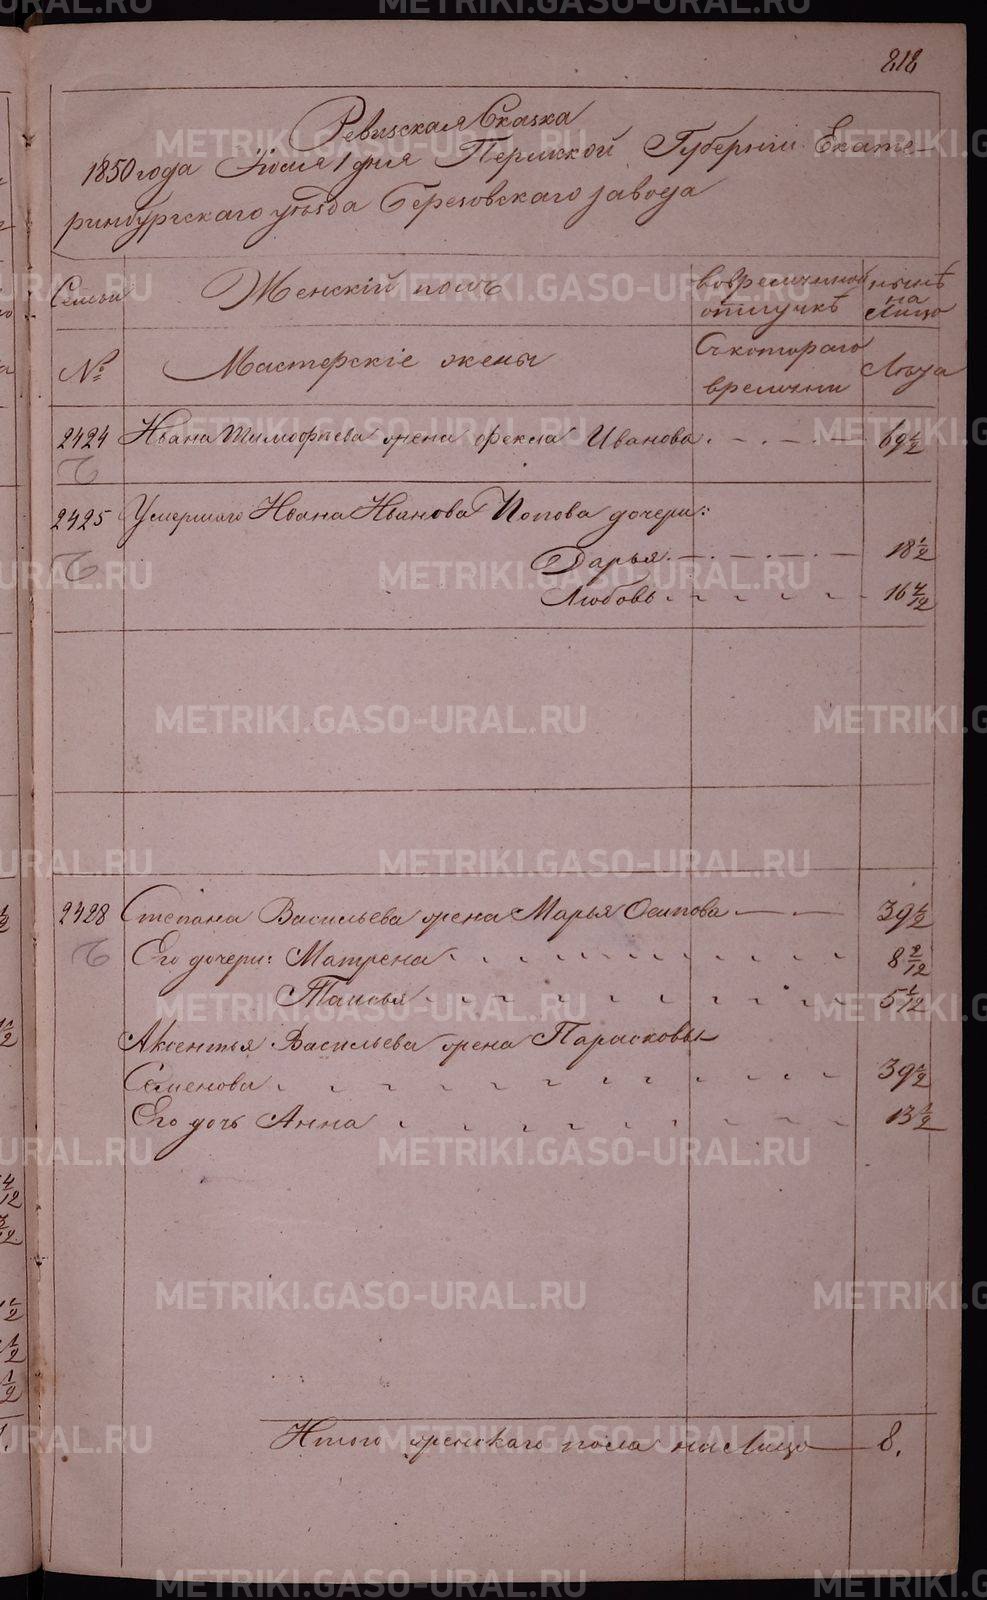 212
Ревизская Сказка
1850 года Июля 1 дня Пермской Губернии Екате-
ринбургскаго уѣзда Березовскаго завода
Семьи Женскій полъ во временной отлучкѣ нынѣ на Лицо
№ Мастерскіе жены Съ котораго времени Лѣта
2424 Ивана Тимофѣева жена Фекла Иванова 69 1/2
2425 Умершаго Ивана Иванова Попова дочери:
Дарья 18 1/2
Любовь 16 4/12
2428 Степана Васильева жена Марья Осипова 39 1/2
Его дочери: Матрена 8 2/12
Таисья 5 1/12
Аксентья Васильева жена Парасковья
Семенова 39 1/2
Его дочь Анна 13 1/2
Итого женскаго пола на Лицо 8.
METRIKI.GASO-URAL.RU